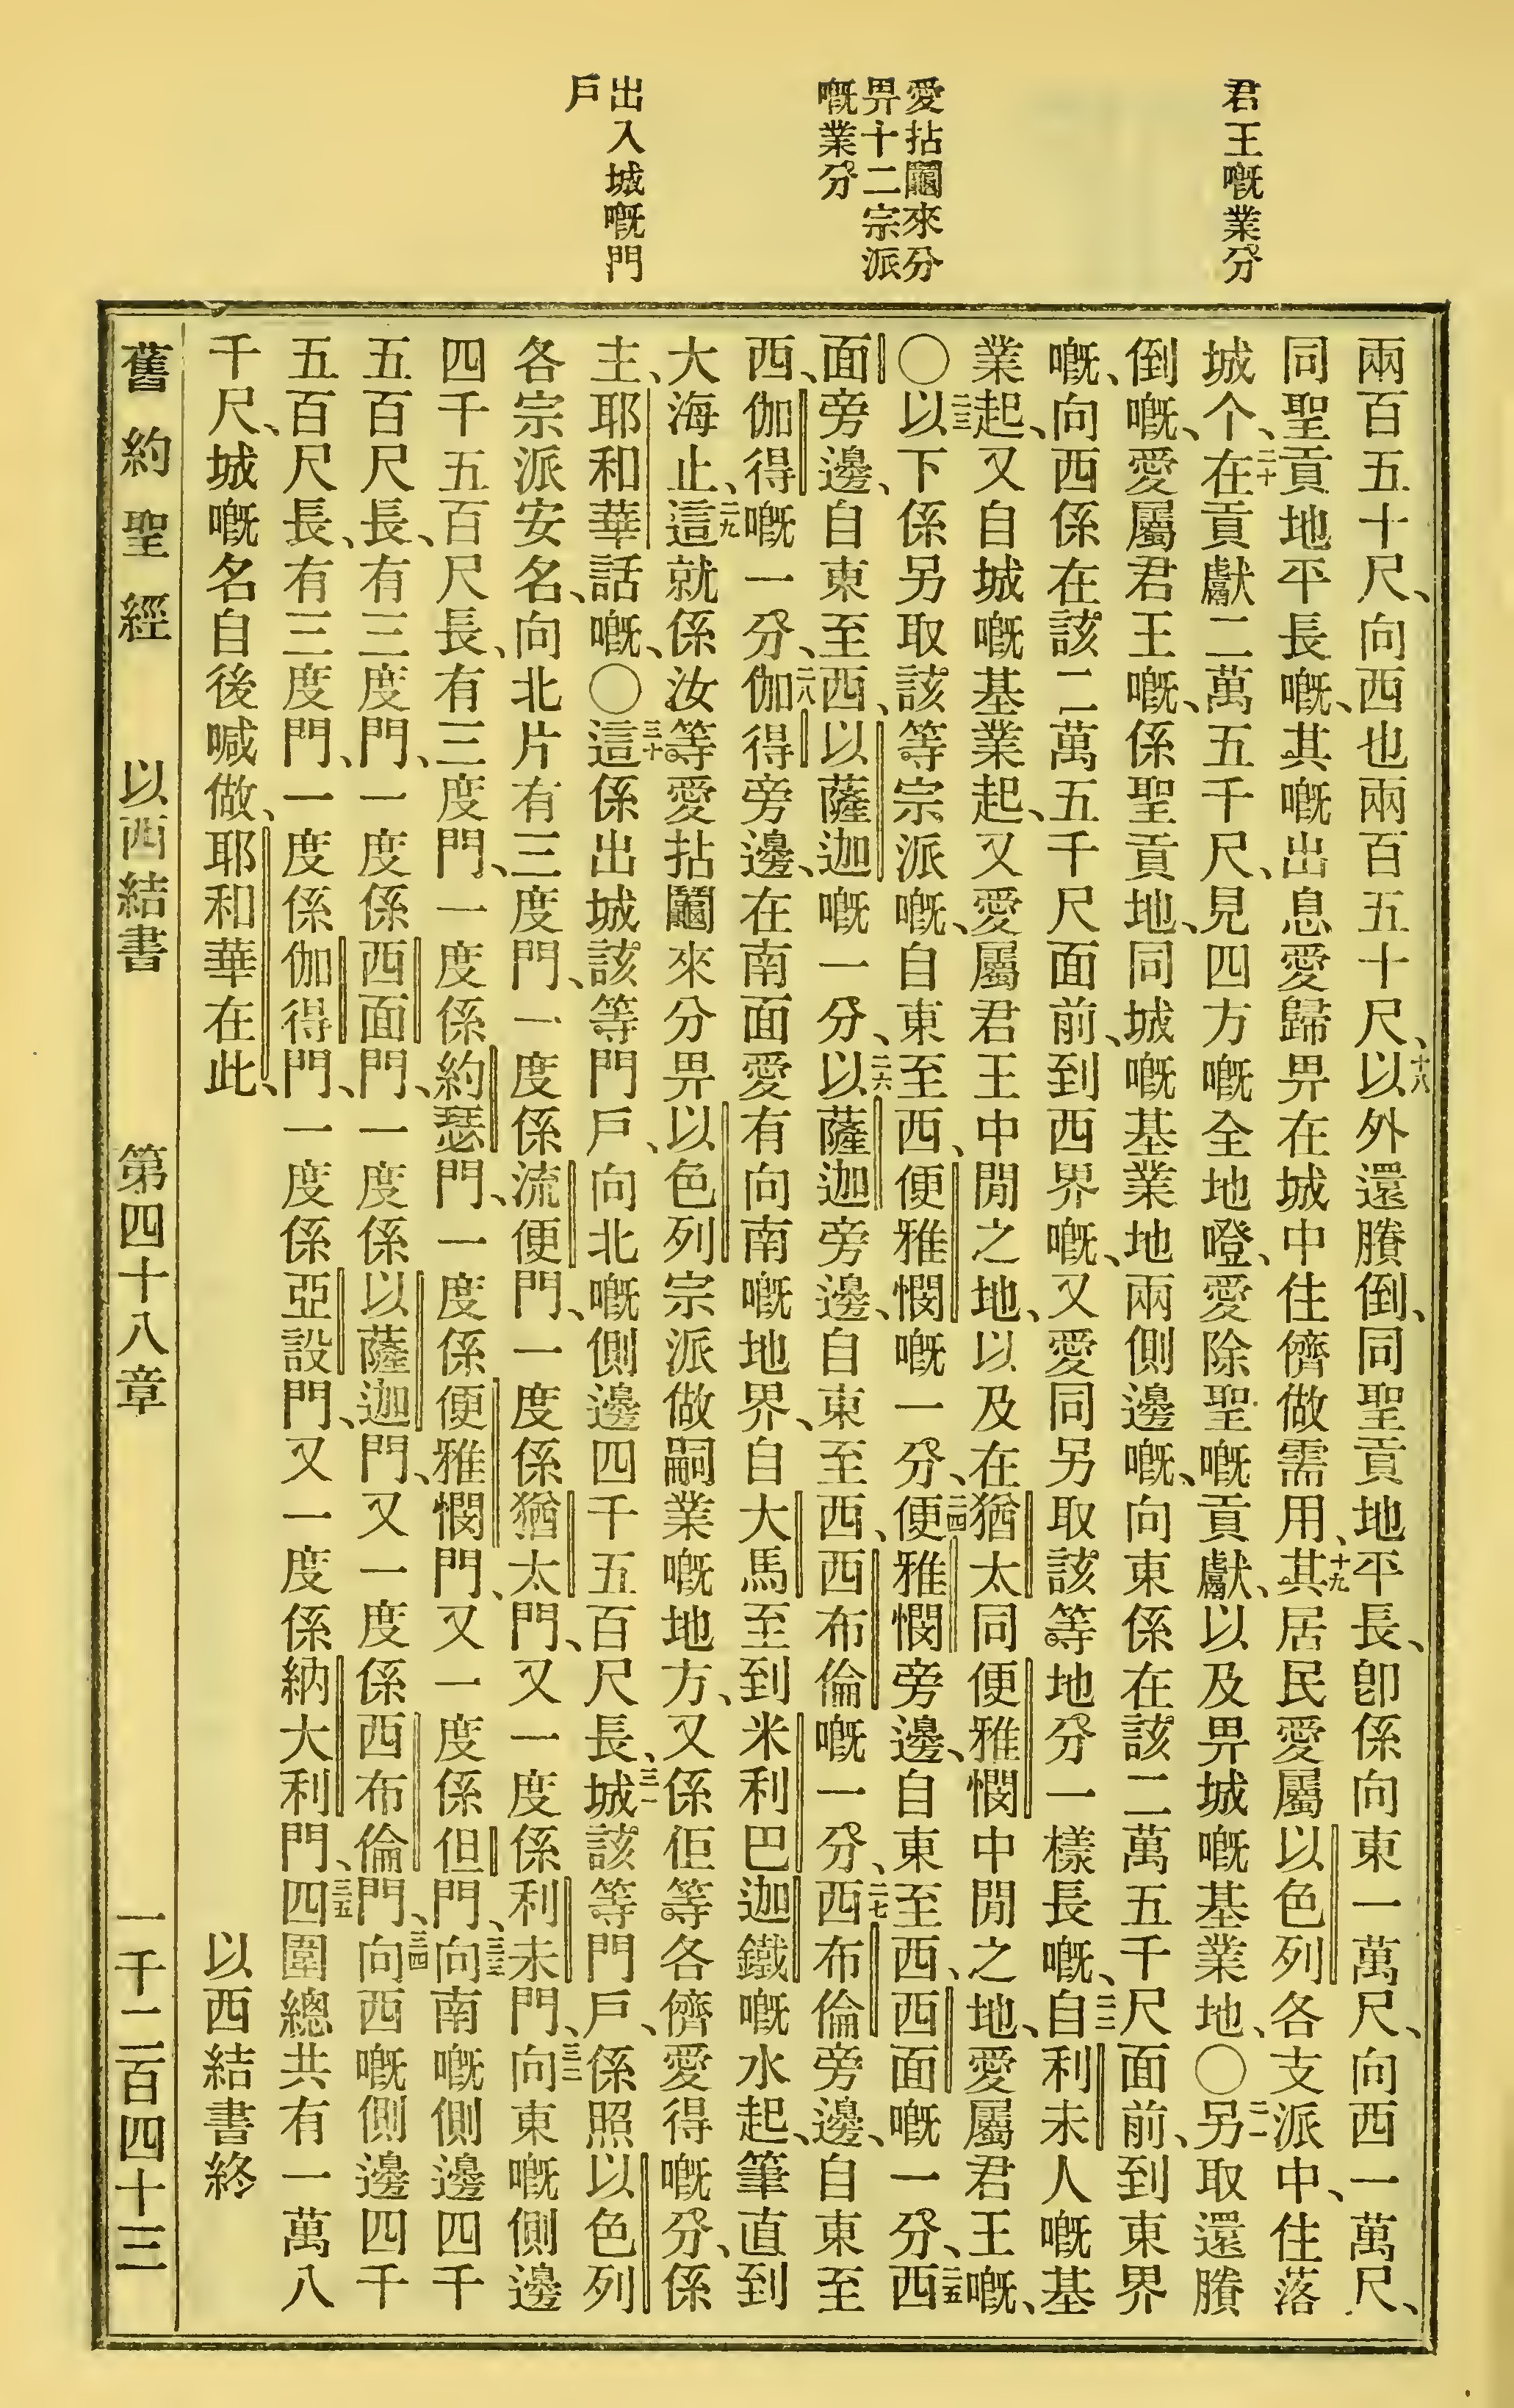 君王嘅業分
愛拈鬮來分
畀十二宗派
嘅業分
出入城嘅門
戶
兩百五十尺、向西也兩百五十尺、十八以外還賸倒、同聖貢地平長、卽係向東一萬尺、向西一萬尺、
同聖貢地平長嘅、其嘅出息愛歸畀在城中住儕做需用、十九其居民愛屬以色列各支派中、住落
城个、二十在貢獻二萬五千尺、見四方嘅全地噔、愛除聖嘅貢獻、以及畀城嘅基業地、〇二一另取還賸
倒嘅、愛屬君王嘅、係聖貢地、同城嘅基業地兩側邊嘅、向東係在該二萬五千尺面前、到東界
嘅、向西係在該二萬五千尺面前、到西界嘅、又愛同另取該等地分一樣長嘅、二二自利未人嘅基
業起、又自城嘅基業起、又愛屬君王中閒之地、以及在猶太同便雅憫中閒之地、愛屬君王嘅、
〇二三以下係另取該等宗派嘅、自東至西、便雅憫嘅一分、二四便雅憫旁邊、自東至西、西面嘅一分、二五西
面旁邊、自東至西、以薩迦嘅一分、二六以薩迦旁邊、自東至西、西布倫嘅一分、二七西布倫旁邊、自東至
西、伽得嘅一分、二八伽得旁邊、在南面愛有向南嘅地界、自大馬至到米利巴迦鐵嘅水起、筆直到
大海止、二九這就係汝等愛拈鬮來分畀以色列宗派做嗣業嘅地方、又係佢等各儕愛得嘅分、係
主、耶和華話嘅、〇三十這係出城該等門戶、向北嘅側邊四千五百尺長、三一城該等門戶、係照以色列
各宗派安名、向北片有三度門、一度係流便門、一度係猶太門、又一度係利未門、三二向東嘅側邊
四千五百尺長、有三度門、一度係約瑟門、一度係便雅憫門、又一度係但門、三三向南嘅側邊四千
五百尺長、有三度門、一度係西面門、一度係以薩迦門、又一度係西布倫門、三四向西嘅側邊四千
五百尺長、有三度門、一度係伽得門、一度係亞設門、又一度係納大利門、三五四圍總共有一萬八
千尺、城嘅名自後喊做、耶和華在此、
以西結書終
舊約聖經　以西結書　第四十八章　一千二百四十三